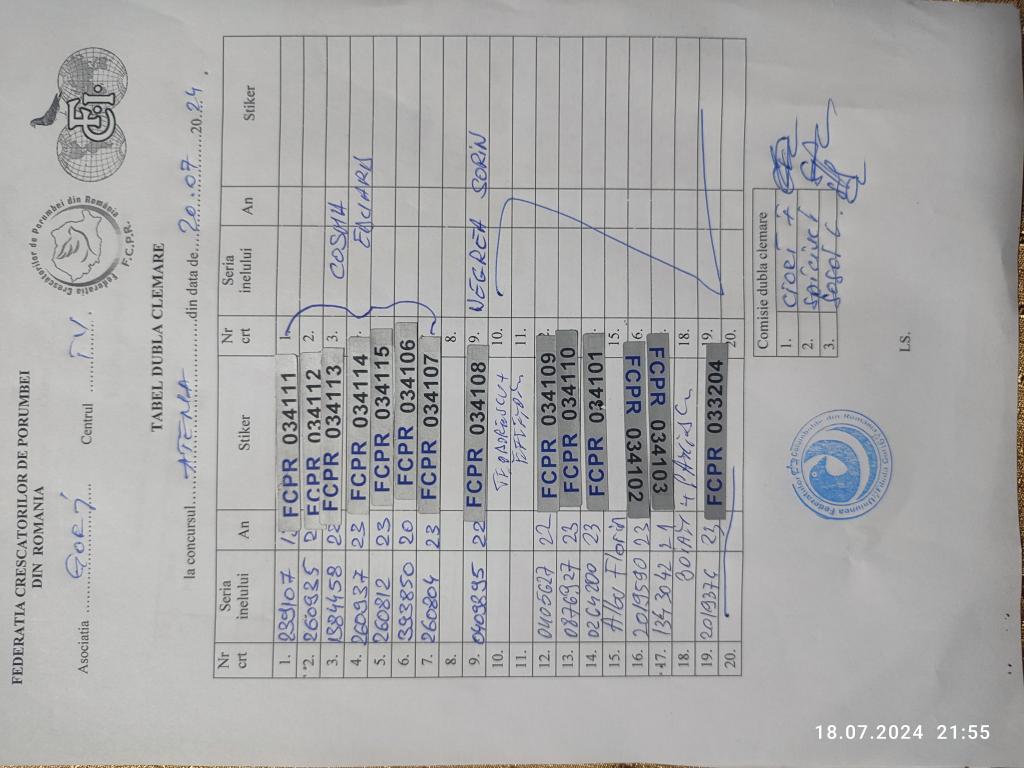 FEDERATIA CRESCATORILOR DE PORUMBEI
DIN ROMANIA
Federatia Crescatorilor de Porumbei din România
F.C.P.R.
FCI
Asociatia ........ GORJ ........ Centrul ..... TV .....
TABEL DUBLA CLEMARE
la concursul ...... ATENA ...... din data de ... 20.07 ... 20.24.
Nr crt Seria inelului An Stiker Nr crt Seria inelului An Stiker
1. 239107 FCPR 034111 1.
2. 260935 FCPR 034112 2.
3. 1384558 22 FCPR 034113 3. COSMA
4. 260937 23 FCPR 034114 4. EDUARD
5. 260812 23 FCPR 034115
6. 393850 20 FCPR 034106
7. 260804 23 FCPR 034107 7.
8. 8.
9. 0409895 22 FCPR 034108 9. NEGREA SORIN
10. 10.
11. 11.
12. 0405627 22 FCPR 034109
13. 0876927 23 FCPR 034110
14. 0264200 23 FCPR 034101
15. Albu Florin 15.
16. 2019590 23 FCPR 034102 6.
17. 1343042 21 FCPR 034103
18. 18.
19. 2019376 FCPR 033204 9.
20. 20.
Comisie dubla clemare
1.
2.
3.
L.S.
18.07.2024 21:55